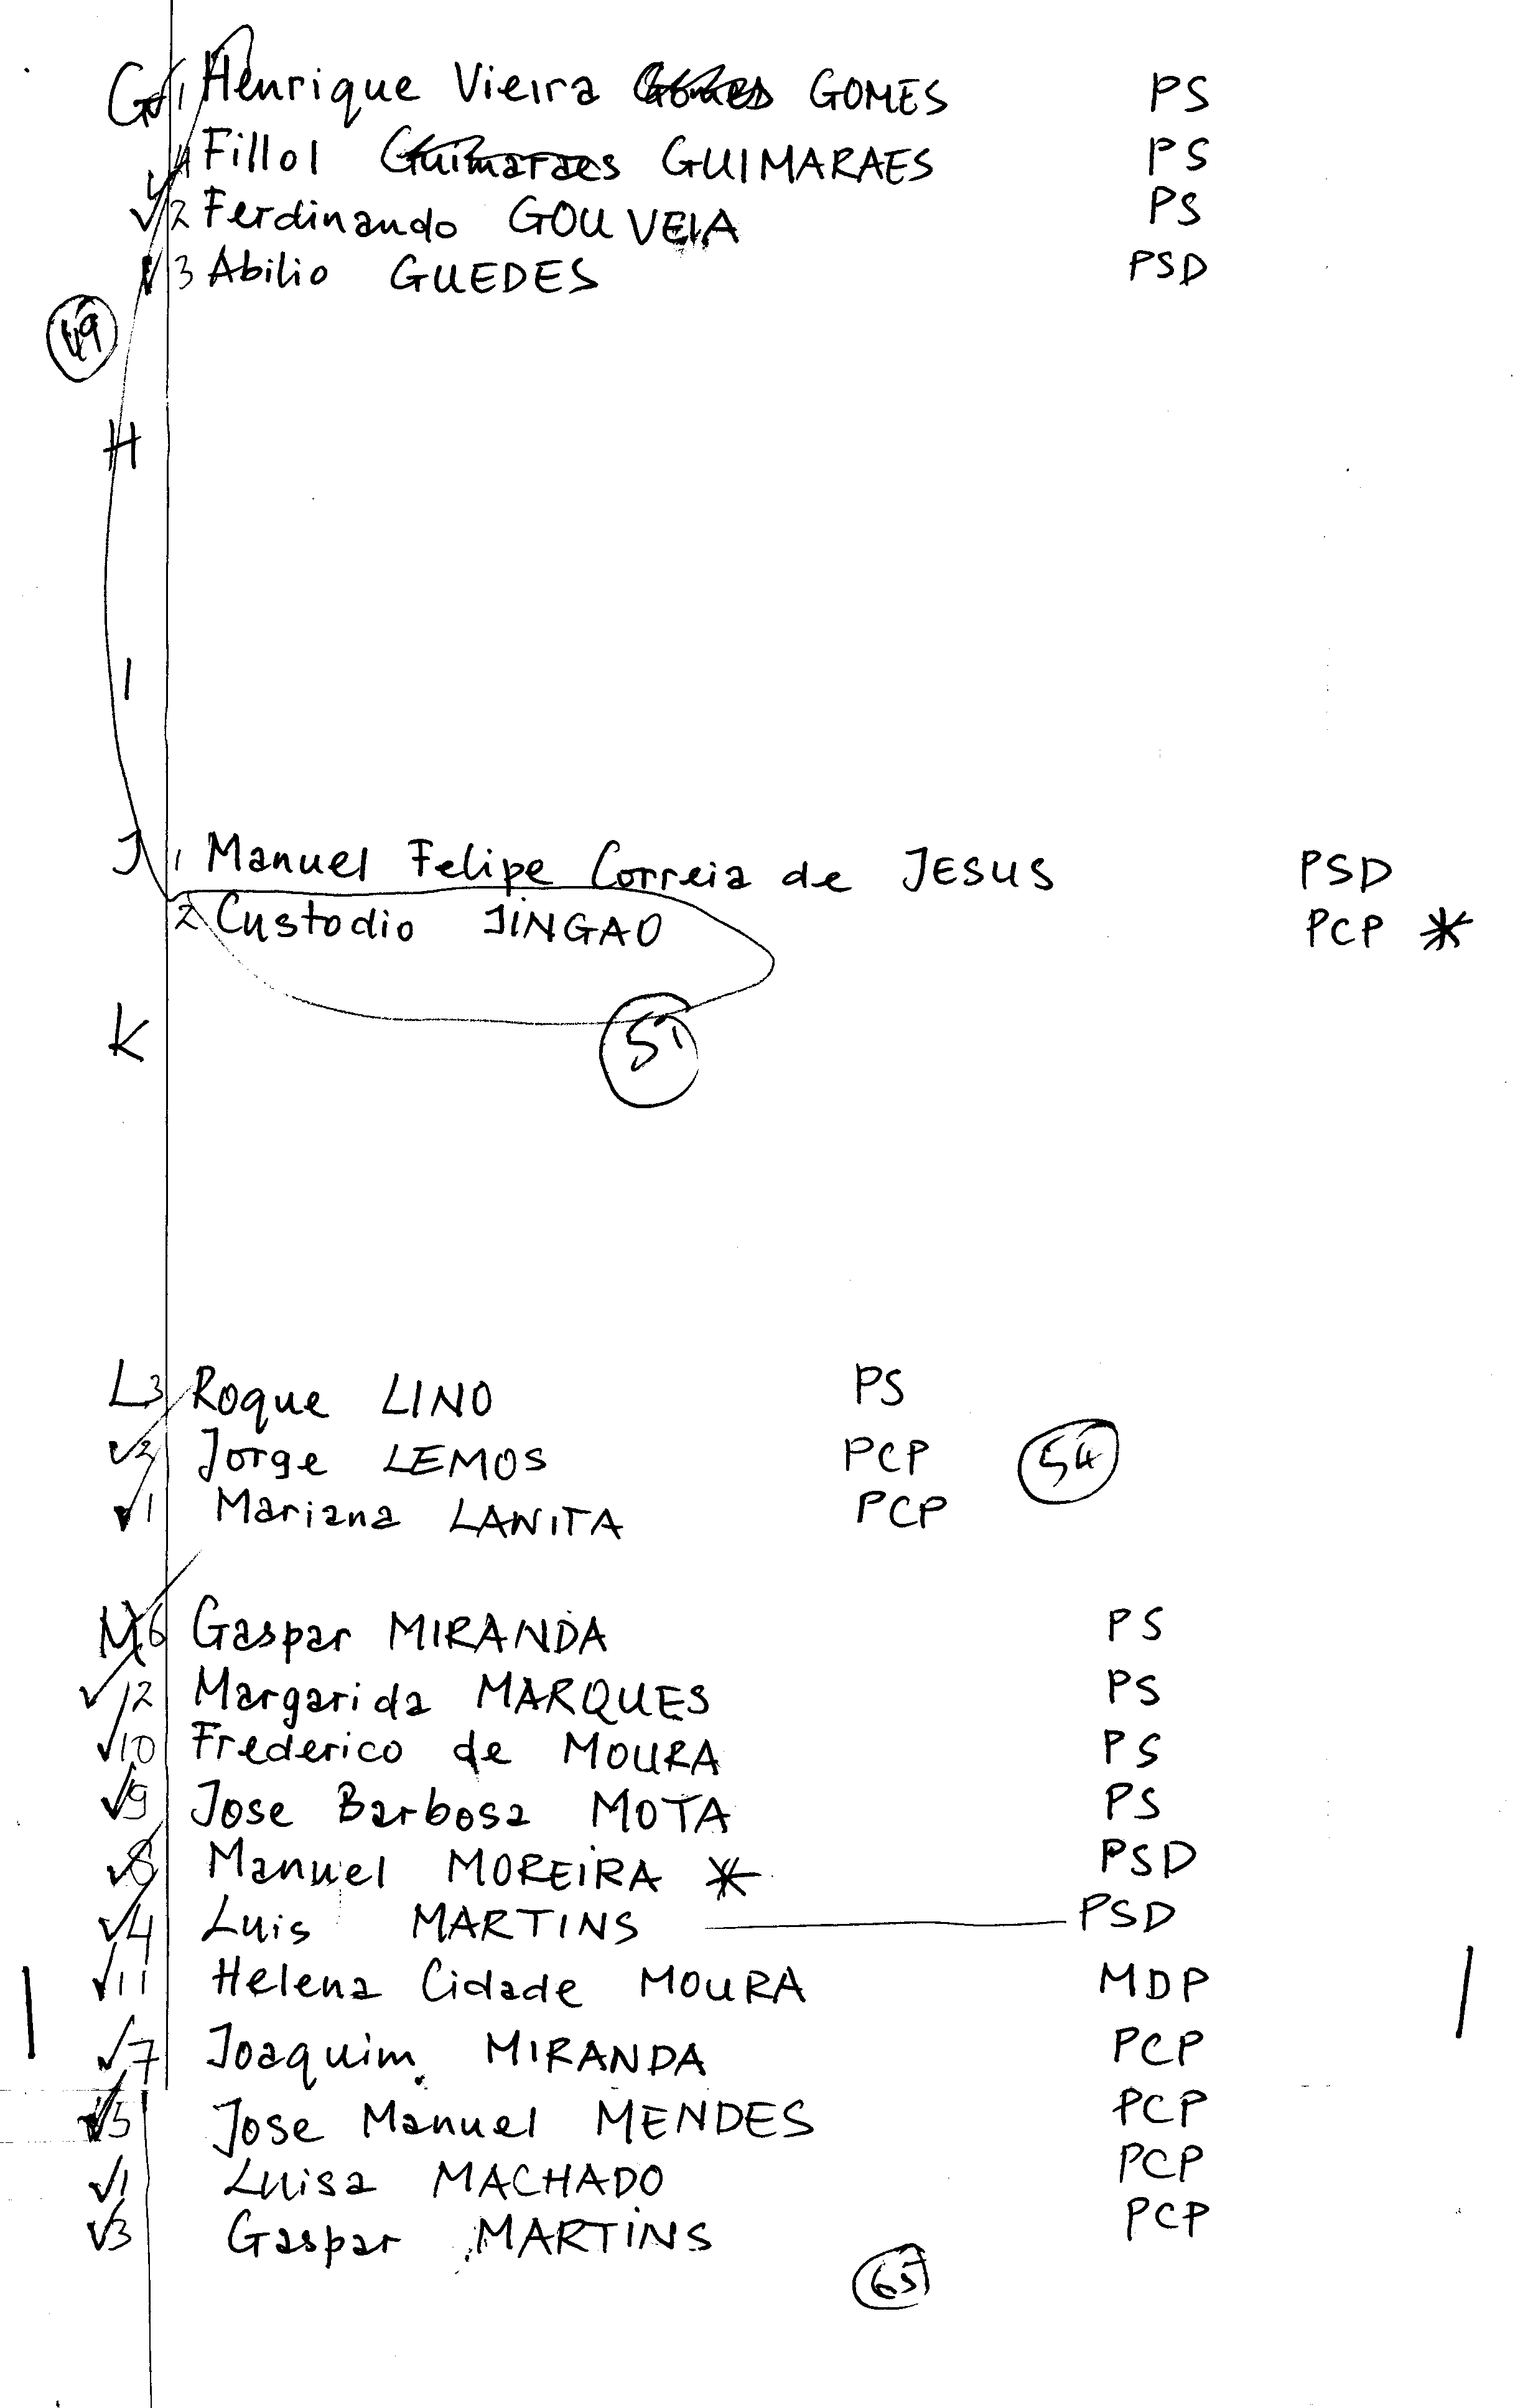 G 1 Henrique Vieira Gomes GOMES PS
4 Fillol Guimaraes GUIMARAES PS
√2 Ferdinando GOUVEIA PS
√3 Abilio GUEDES PSD
49
H
I
J 1 Manuel Felipe Correia de JESUS PSD
2 Custodio JINGAO PCP *
51
K
L 3 Roque LINO PS
√2 Jorge LEMOS PCP 54
√1 Mariana LANITA PCP
M 6 Gaspar MIRANDA PS
√12 Margarida MARQUES PS
√10 Frederico de MOURA PS
√9 Jose Barbosa MOTA PS
√8 Manuel MOREIRA * PSD
√4 Luis MARTINS — PSD
√11 Helena Cidade MOURA MDP
√7 Joaquim MIRANDA PCP
√5 Jose Manuel MENDES PCP
√1 Luisa MACHADO PCP
√3 Gaspar MARTINS PCP
65